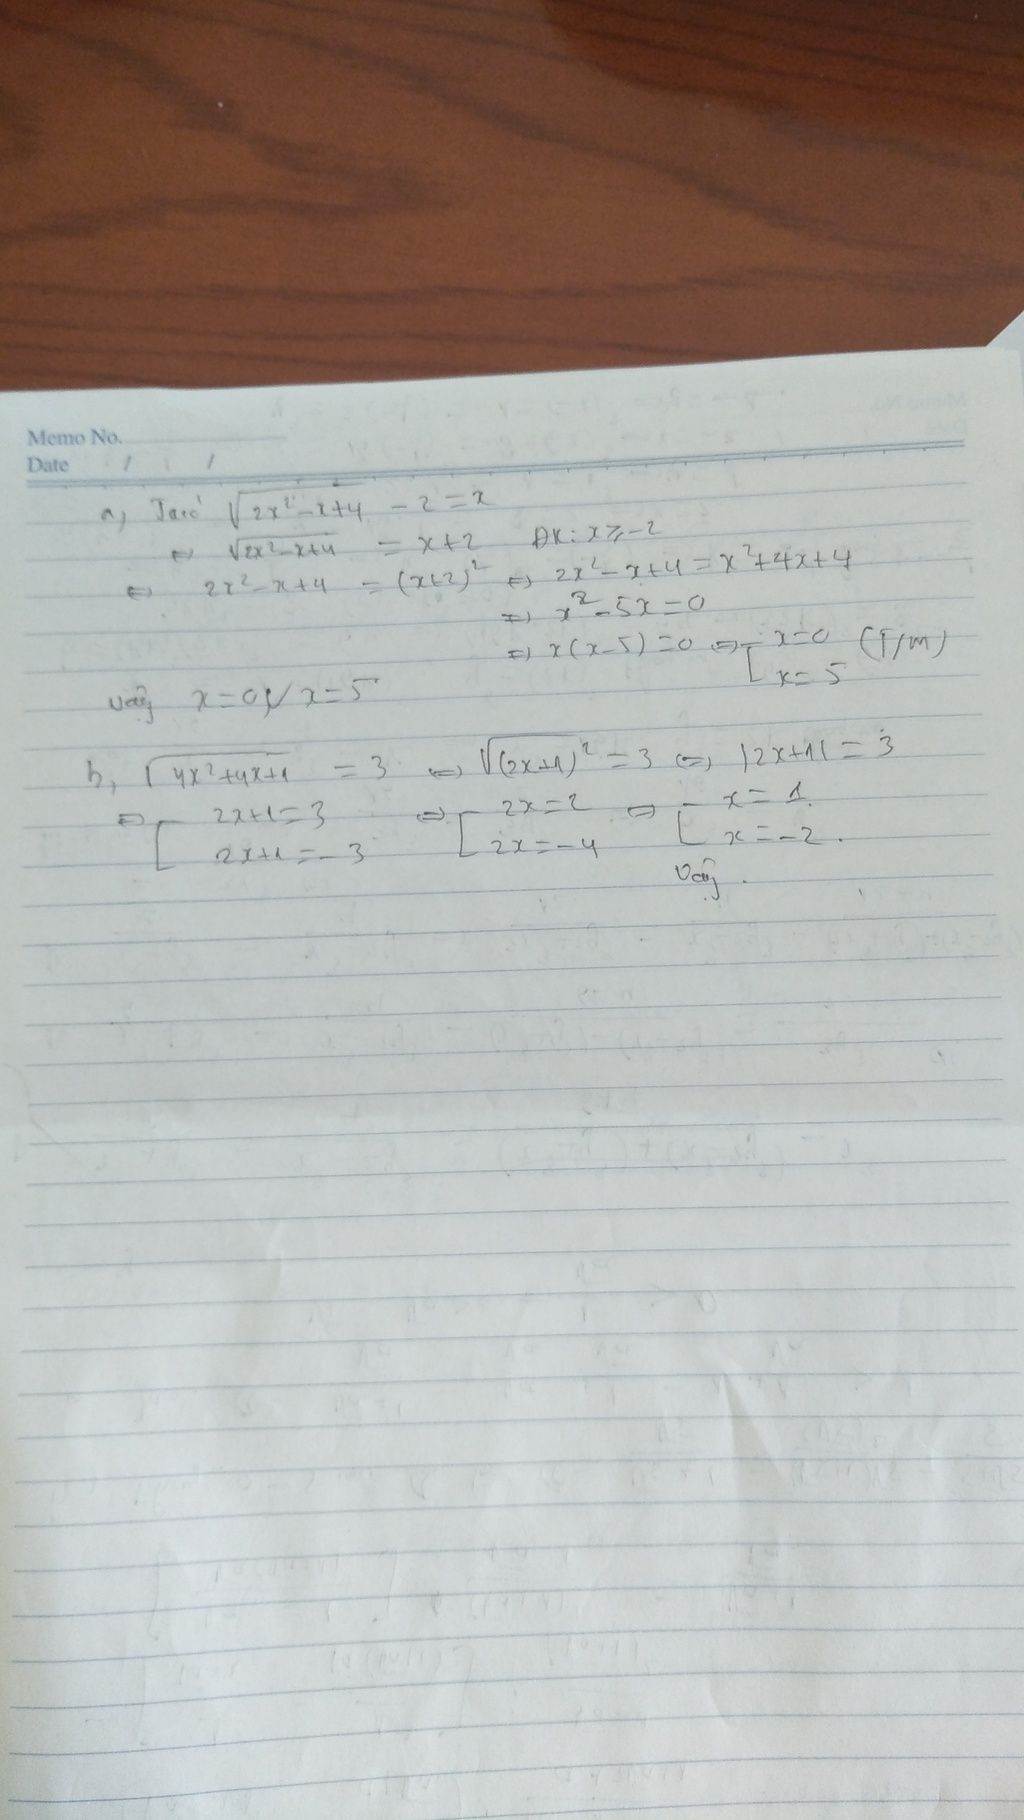 Memo No.
Date / /
a, Ta có √(2x²-x+4) - 2 = x
⇔ √(2x²-x+4) = x+2 ĐK: x ≥ -2
⇔ 2x²-x+4 = (x+2)² ⇔ 2x²-x+4 = x²+4x+4
⇔ x²-5x=0
⇔ x(x-5)=0 ⇔ [ x=0 (T/m)
x=5
Vậy x=0, x=5
b, √(4x²+4x+1) = 3 ⇔ √(2x+1)² = 3 ⇔ |2x+1| = 3
⇔ [ 2x+1=3 ⇔ [ 2x=2 ⇔ [ x=1.
2x+1=-3 2x=-4 x=-2.
Vậy.